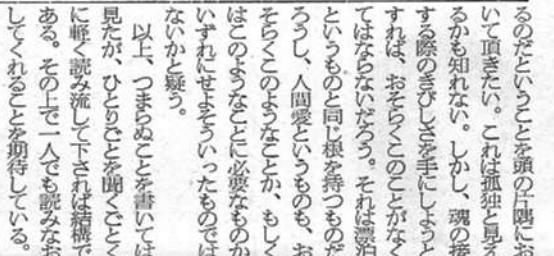 るのだということを頭の片隅にお
いて頂きたい。これは孤独と見え
るかも知れない。しかし、魂の接
する際のきびしさを手にしようと
すれば、おそらくこのことがなく
てはならないだろう。それは漂泊
というものと同じ根を持つものだ
ろうし、人間愛というものも、お
そらくこのようなことか、もしく
はこのようなことに必要なものか
いずれにせよそういったものでは
ないかと疑う。
以上、つまらぬことを書いては
見たが、ひとりごとを聞くごとく
に軽く読み流して下されば結構で
ある。その上で一人でも読みなお
してくれることを期待している。